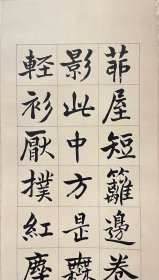 茆屋短籬邊卷
影此中方是
輕衫厭撲紅塵